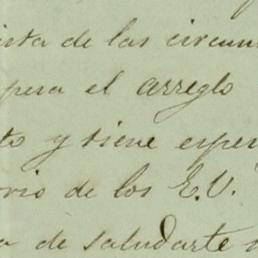 ista de las circun
pera el arreglo
to y tiene esper
rio de los E.V.
a de saludarte